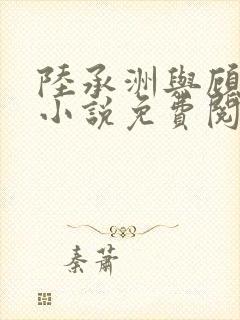 陸承洲與顧
小説免費閱
秦蕭